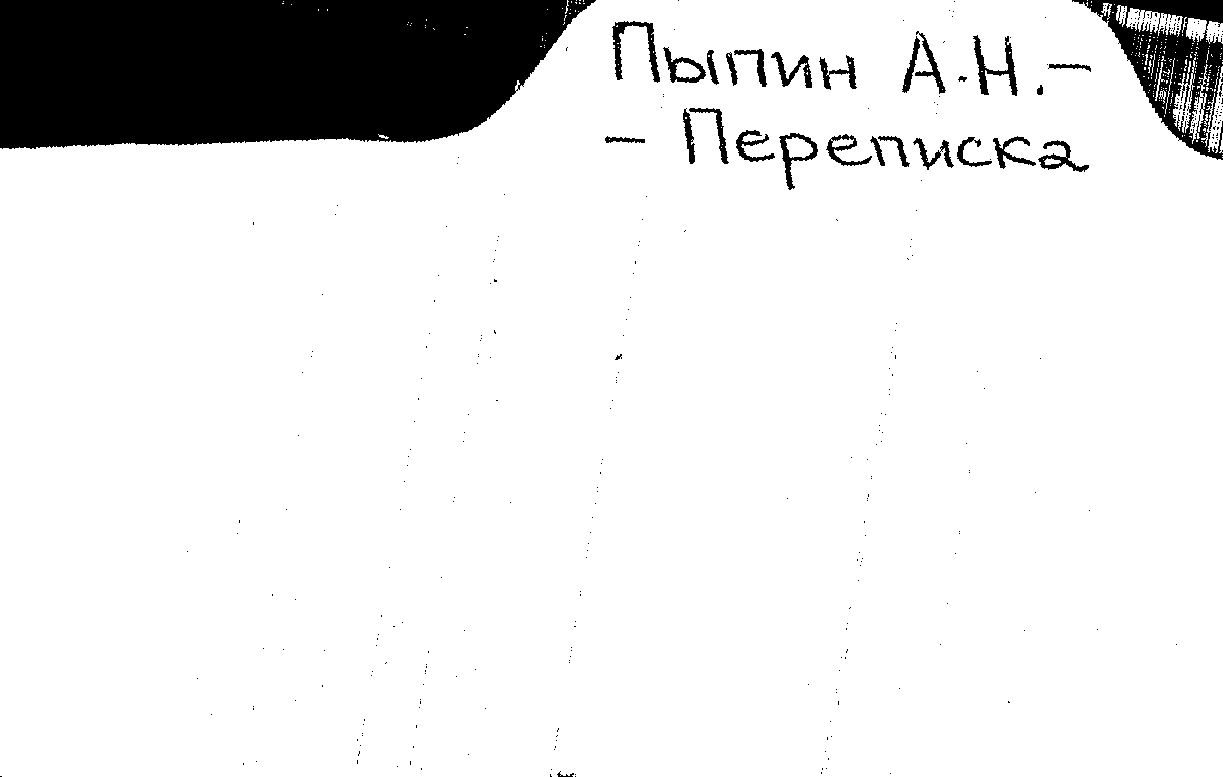 Пыпин А.Н. –
– Переписка